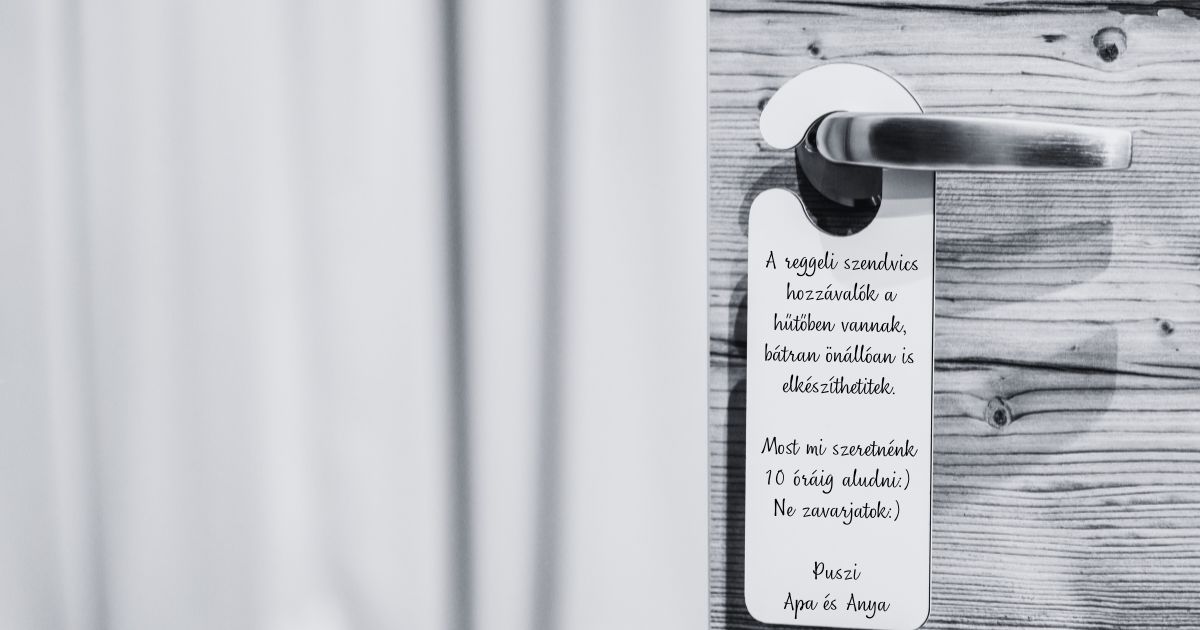 A reggeli szendvics
hozzávalók a
hűtőben vannak,
bátran önállóan is
elkészíthetitek.
Most mi szeretnénk
10 óráig aludni:)
Ne zavarjatok:)
Puszi
Apa és Anya